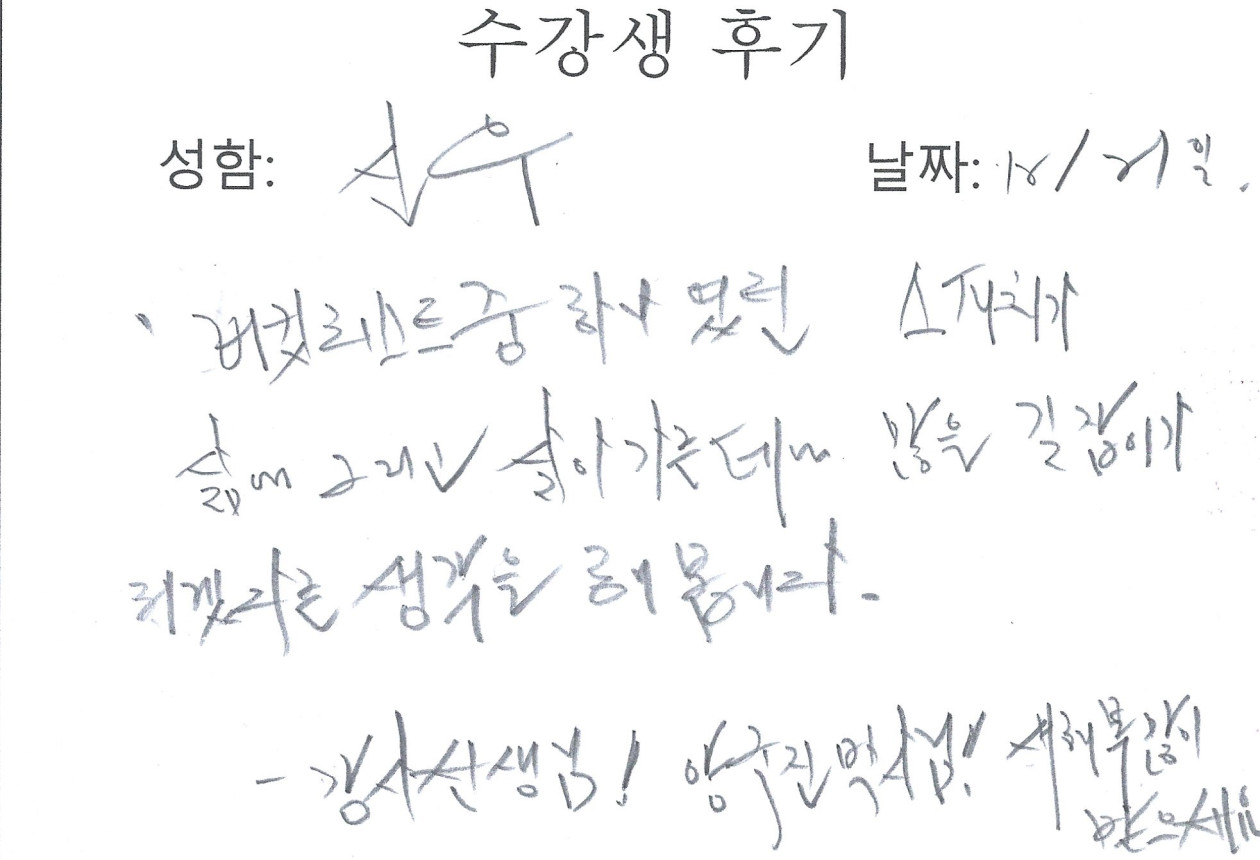 수강생 후기
성함: 날짜: 12/21일.
버킷리스트중 하나 였던 스피치가
삶에 그리고 살아가는데에 많은 길잡이가
되겠다는 생각을 해 봅니다.
- 강사선생님! 양국진박사님! 새해복많이
받으세